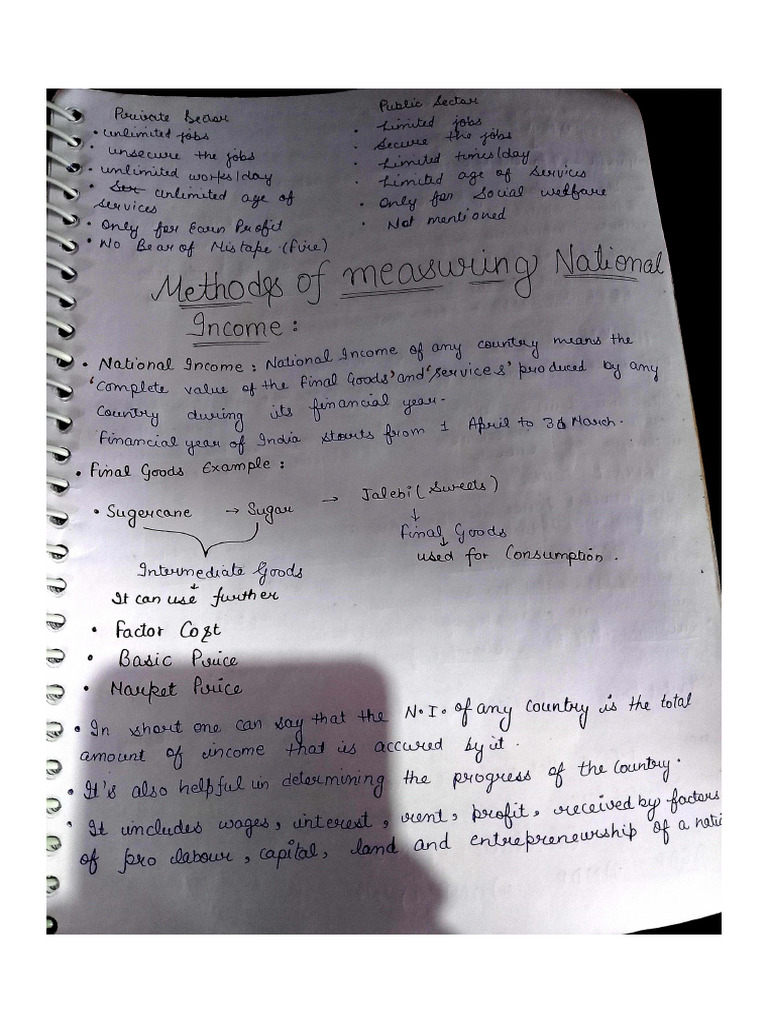 Private Sector
• unlimited jobs
• unsecure the jobs
• unlimited works/day
• unlimited age of
services
• Only for Earn Profit
• No Bear of Mistape (fire)
Public Sector
• Limited jobs
• Secure the jobs
• Limited times/day
• Limited age of Services
• Only for Social welfare
• Not mentioned
Methods of measuring National
Income:
• National Income: National Income of any country means the
'complete value of the final Goods' and 'services' produced by any
country during its financial year.
financial year of India starts from 1 April to 31 March.
• Final Goods Example:
• Sugercane → Sugar → Jalebi (Sweets)
↓
final Goods
↓
used for Consumption.
Intermediate Goods
↓
It can use further
• Factor Cost
• Basic Price
• Market Price
• In short one can say that the N.I. of any country is the total
amount of income that is accured by it.
• It's also helpful in determining the progress of the country.
• It includes wages, interest, rent, profit, received by factors
of pro labour, capital, land and entrepreneurship of a nati